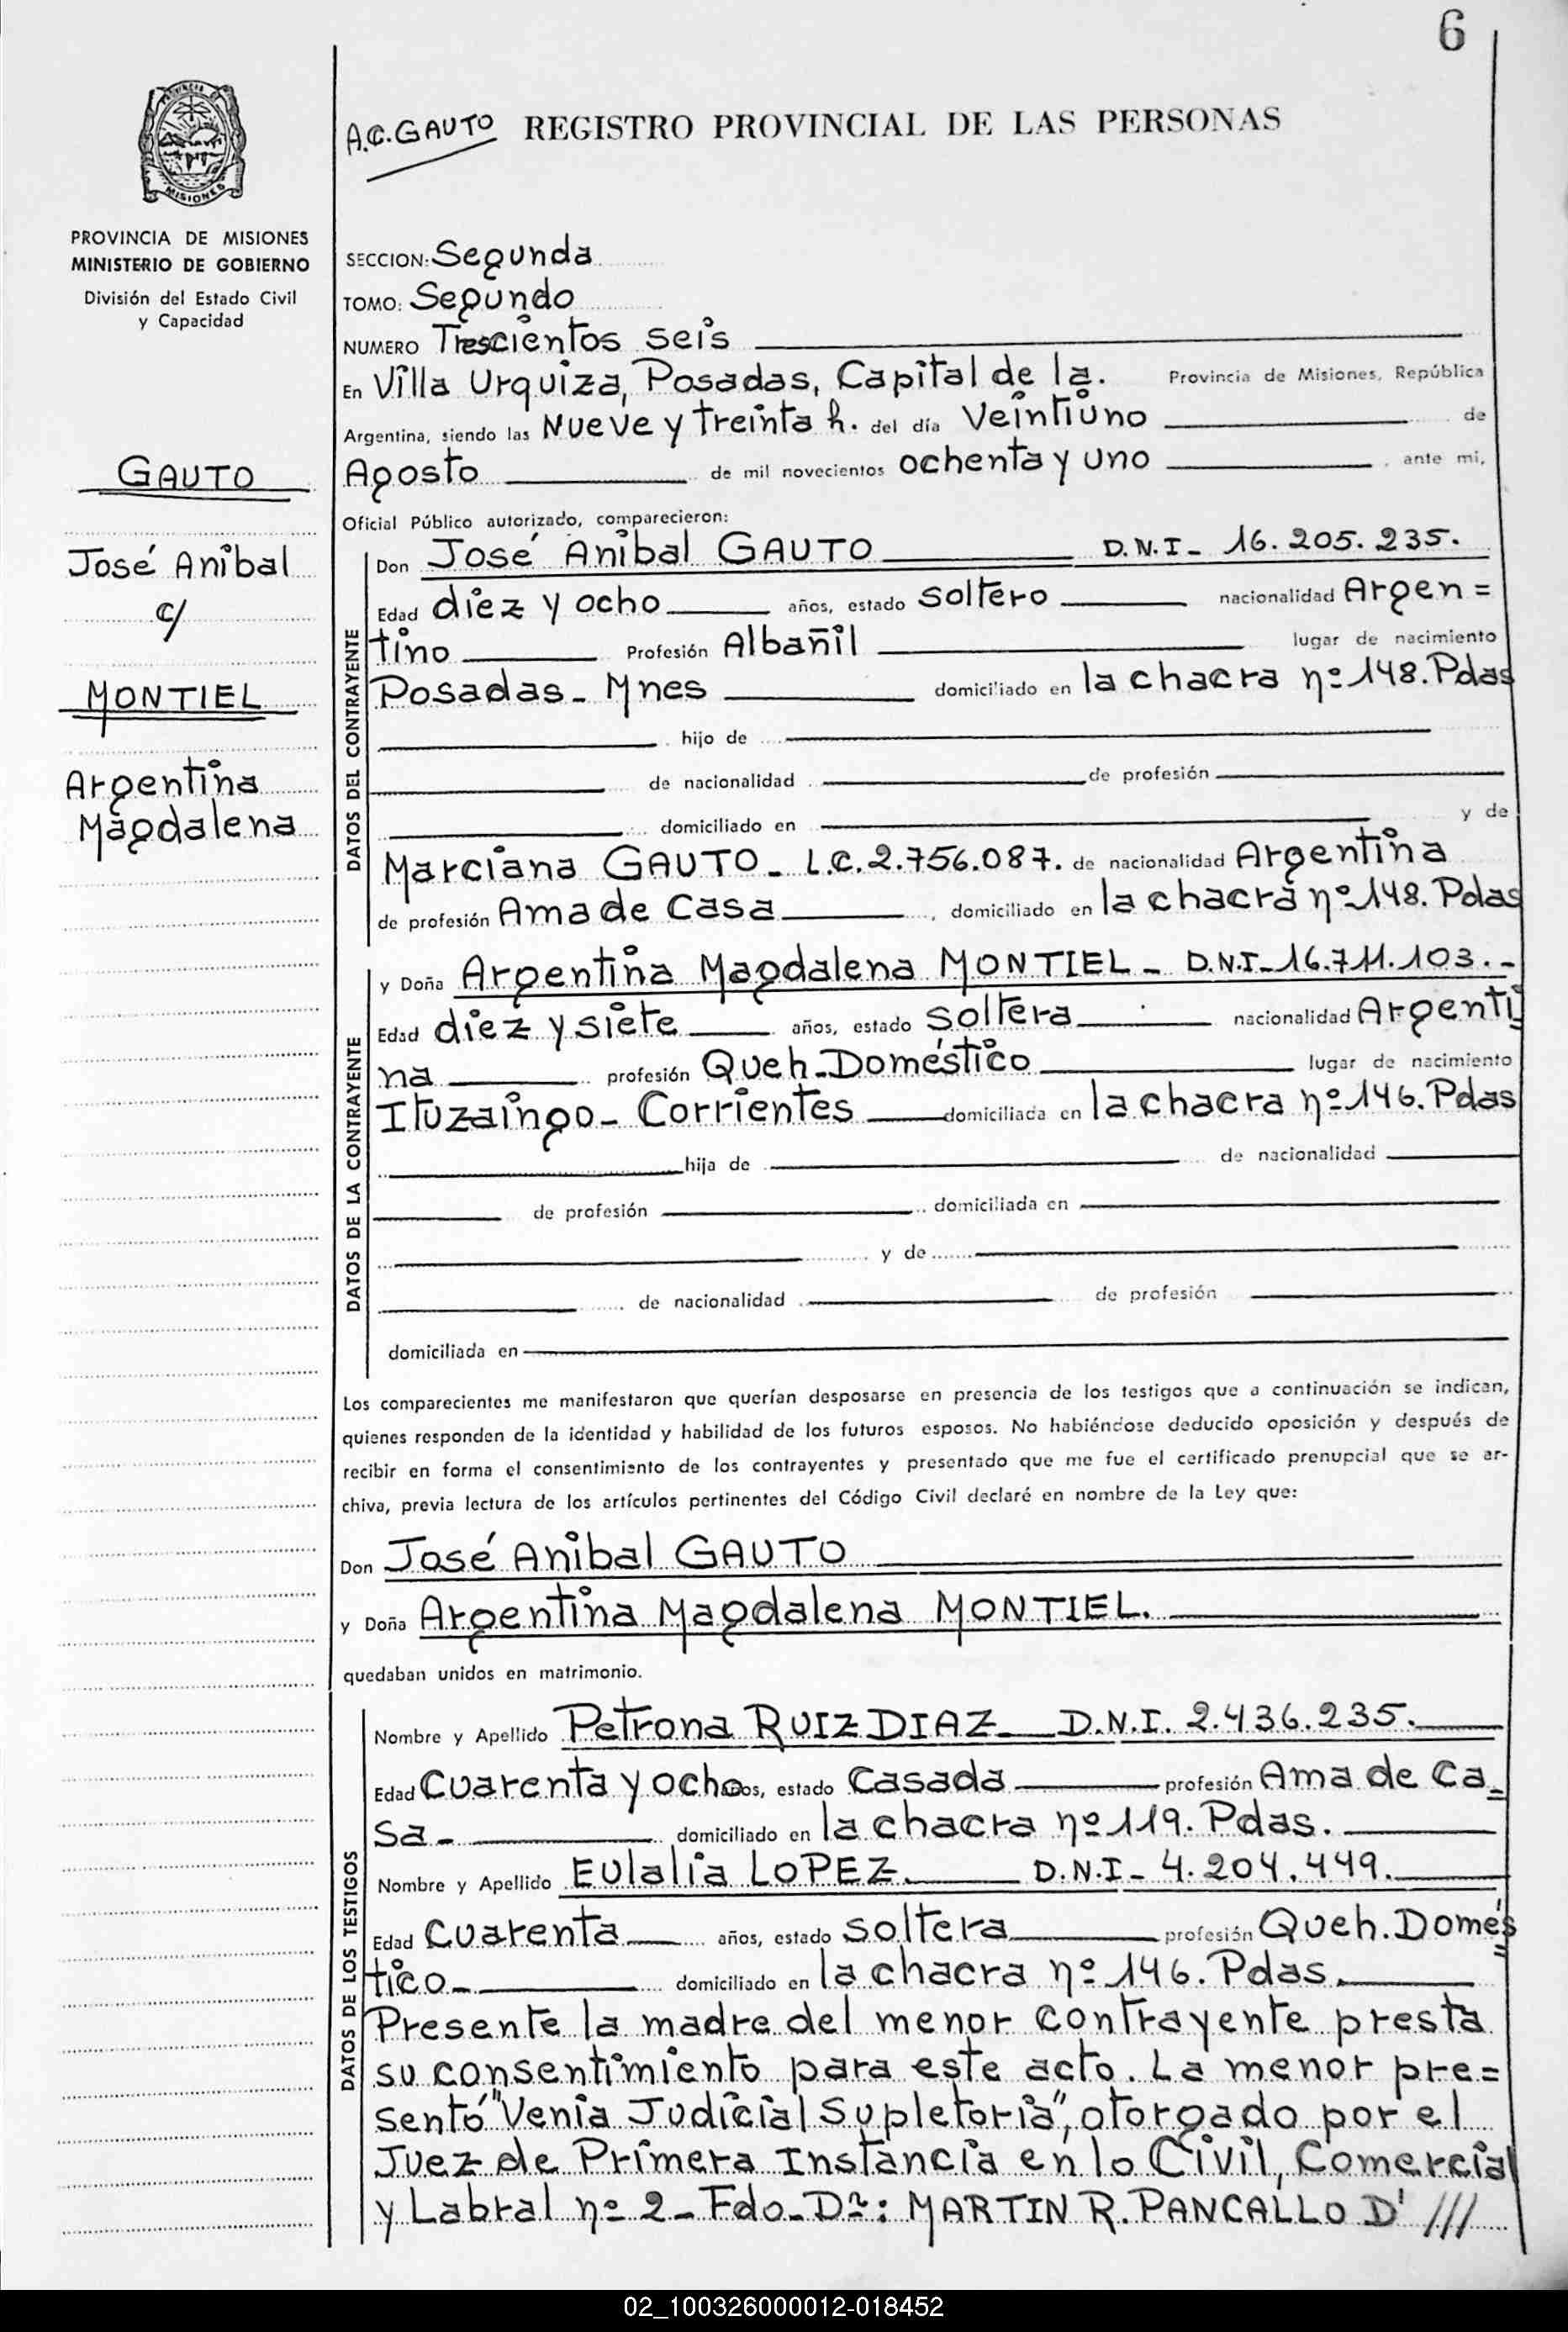 6
A.C. GAUTO REGISTRO PROVINCIAL DE LAS PERSONAS
MISIONES
PROVINCIA DE MISIONES
MINISTERIO DE GOBIERNO
División del Estado Civil
y Capacidad
GAUTO
José Anibal
c/
MONTIEL
Argentina
Magdalena
SECCION: Segunda
TOMO: Segundo
NUMERO Trescientos seis
En Villa Urquiza, Posadas, Capital de la. Provincia de Misiones, República
Argentina, siendo las Nueve y treinta h. del día Veintiuno de
Agosto de mil novecientos ochenta y uno , ante mi,
Oficial Público autorizado, comparecieron:
DATOS DEL CONTRAYENTE
Don José Anibal GAUTO D.N.I- 16.205.235.
Edad diez y ocho años, estado soltero nacionalidad Argen=
tino Profesión Albañil lugar de nacimiento
Posadas- Mnes domiciliado en la chacra nº 148. Pdas
hijo de
de nacionalidad de profesión
domiciliado en y de
Marciana GAUTO- L.C. 2.756.087. de nacionalidad Argentina
de profesión Ama de Casa , domiciliado en la chacra nº 148. Pdas
DATOS DE LA CONTRAYENTE
y Doña Argentina Magdalena MONTIEL- D.N.I- 16.711.103.-
Edad diez y siete años, estado soltera nacionalidad Argenti
na profesión Queh-Doméstico lugar de nacimiento
Ituzaingo- Corrientes domiciliada en la chacra nº 146. Pdas
hija de de nacionalidad
de profesión domiciliada en
y de
de nacionalidad de profesión
domiciliada en
Los comparecientes me manifestaron que querían desposarse en presencia de los testigos que a continuación se indican,
quienes responden de la identidad y habilidad de los futuros esposos. No habiéndose deducido oposición y después de
recibir en forma el consentimiento de los contrayentes y presentado que me fue el certificado prenupcial que se ar-
chiva, previa lectura de los artículos pertinentes del Código Civil declaré en nombre de la Ley que:
Don José Anibal GAUTO
y Doña Argentina Magdalena MONTIEL.
quedaban unidos en matrimonio.
DATOS DE LOS TESTIGOS
Nombre y Apellido Petrona RUIZ DIAZ D.N.I. 2.436.235.
Edad Cuarenta y ocho años, estado Casada profesión Ama de Ca_
sa- domiciliado en la chacra nº 119. Pdas.
Nombre y Apellido Eulalia LOPEZ. D.N.I- 4.204.449.
Edad Cuarenta años, estado soltera profesión Queh. Domés
tico- domiciliado en la chacra nº 146. Pdas.
Presente la madre del menor contrayente presta
su consentimiento para este acto. La menor pre=
sentó "Venia Judicial Supletoria", otorgado por el
Juez de Primera Instancia en lo Civil, Comercial
y Labral nº 2- Fdo. Dr: MARTIN R. PANCALLO D' ///
02_100326000012-018452